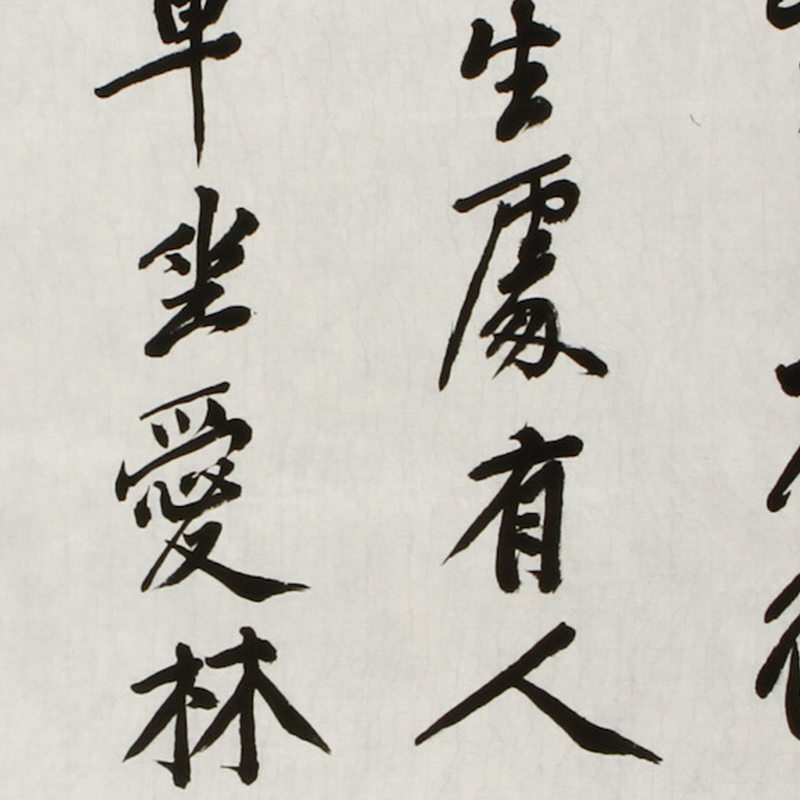 生處有人
車坐愛林